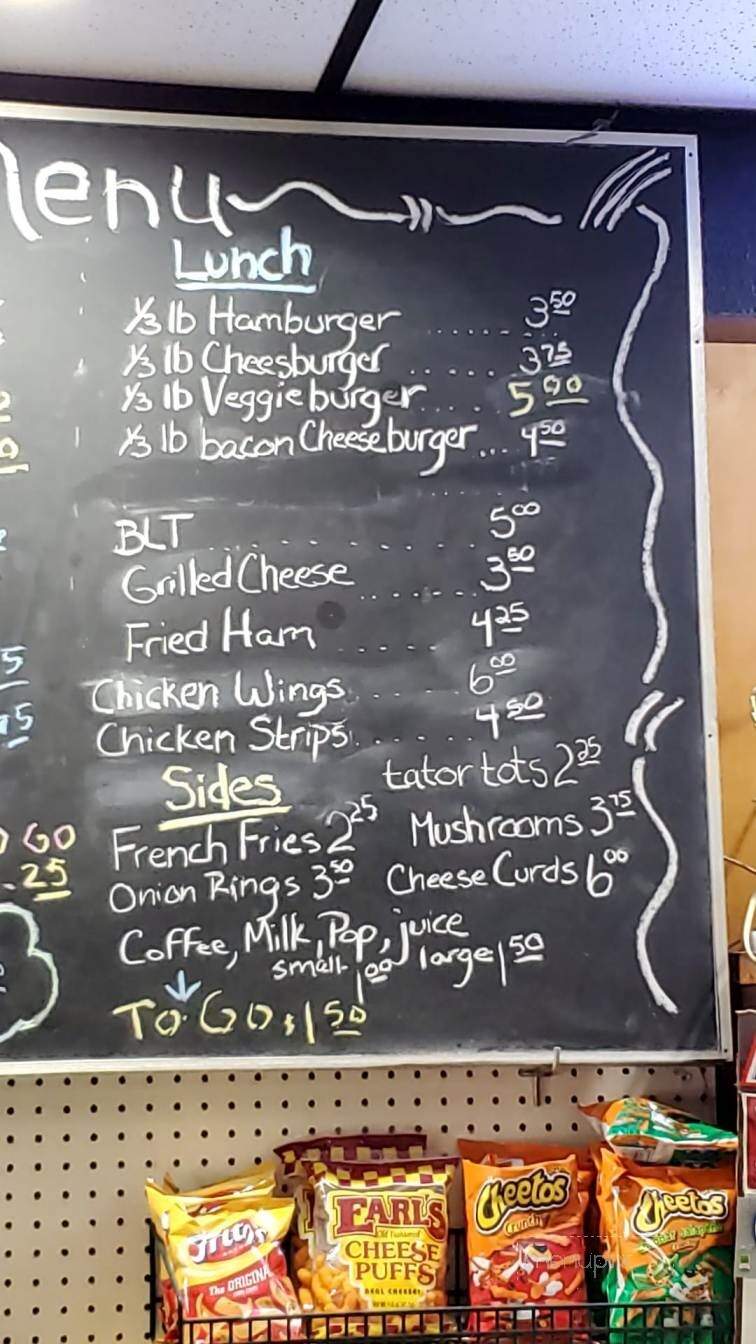 Menu
Lunch
1/3 lb Hamburger ...... 3.50
1/3 lb Cheesburger ...... 3.75
1/3 lb Veggie burger .... 5.00
1/3 lb bacon Cheeseburger ... 4.50
BLT .......... 5.00
Grilled Cheese ....... 3.50
Fried Ham ..... 4.25
Chicken Wings ...... 6.00
Chicken Strips ...... 4.50
Sides
tator tots 2.25
French Fries 2.25
Mushrooms 3.75
Onion Rings 3.50
Cheese Curds 6.00
Coffee, Milk, Pop, juice
small 1.00 large 1.50
To Go $1.50
GO
.25
Fritos
The ORIGINAL
EARL'S
Old Fashioned
CHEESE
PUFFS
REAL CHEESE!
Cheetos
Crunchy
Cheetos
Cheddar Jalapeño